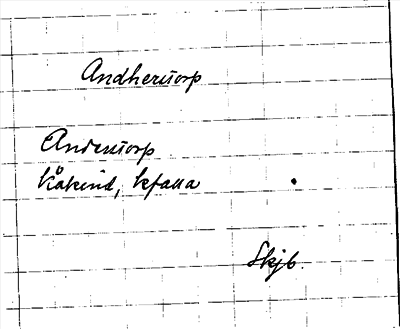 Andherstorp
Anderstorp
Kåkind, kfalla
Skjb.